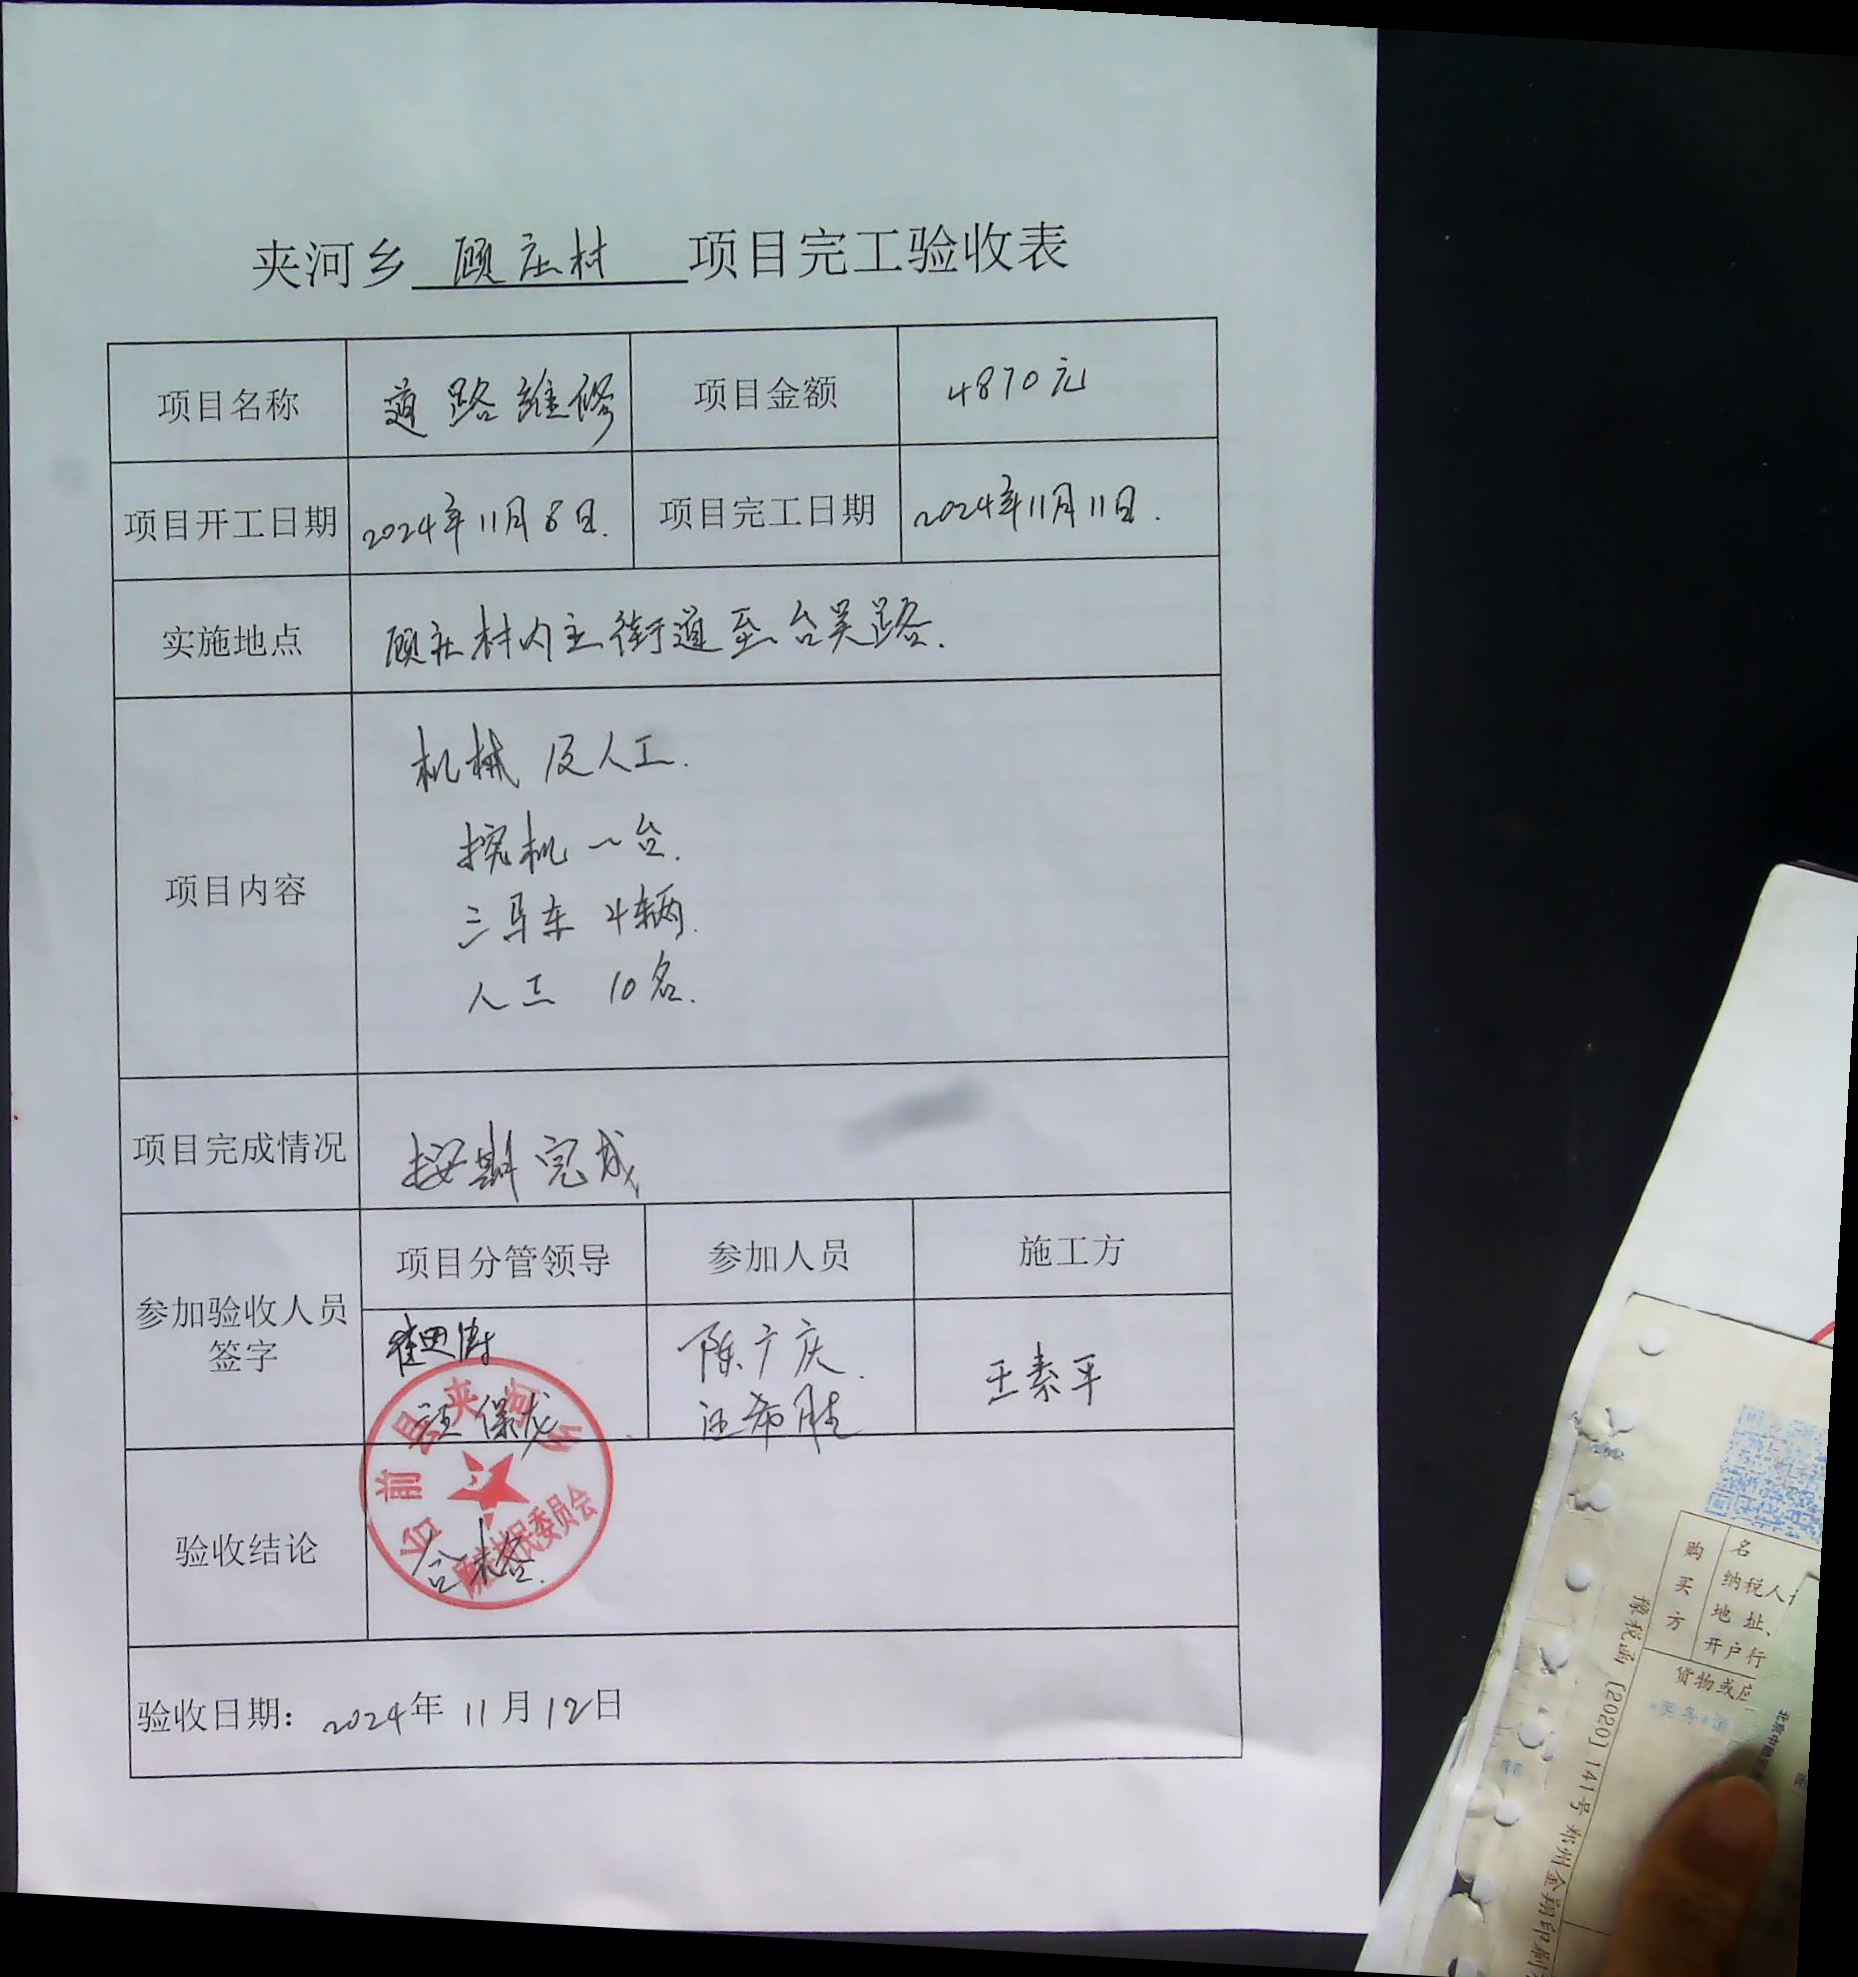 夹河乡 顾庄村 项目完工验收表
项目名称 道路维修 项目金额 4870元
项目开工日期 2024年11月8日. 项目完工日期 2024年11月11日.
实施地点 顾庄村内主街道至台吴路.
项目内容
机械及人工.
挖机一台.
三马车 4辆.
人工 10名.
项目完成情况 按期完成
参加验收人员
签字
项目分管领导 参加人员 施工方
陈广庆.
汪保龙 汪希胜
王素平
台前县夹河乡
顾庄村民委员会
验收结论 合格.
验收日期: 2024年 11月12日
购买方
名
纳税人
地 址、
开户行
货物或应
豫税函 [2020] 141号 郑州金翔印刷